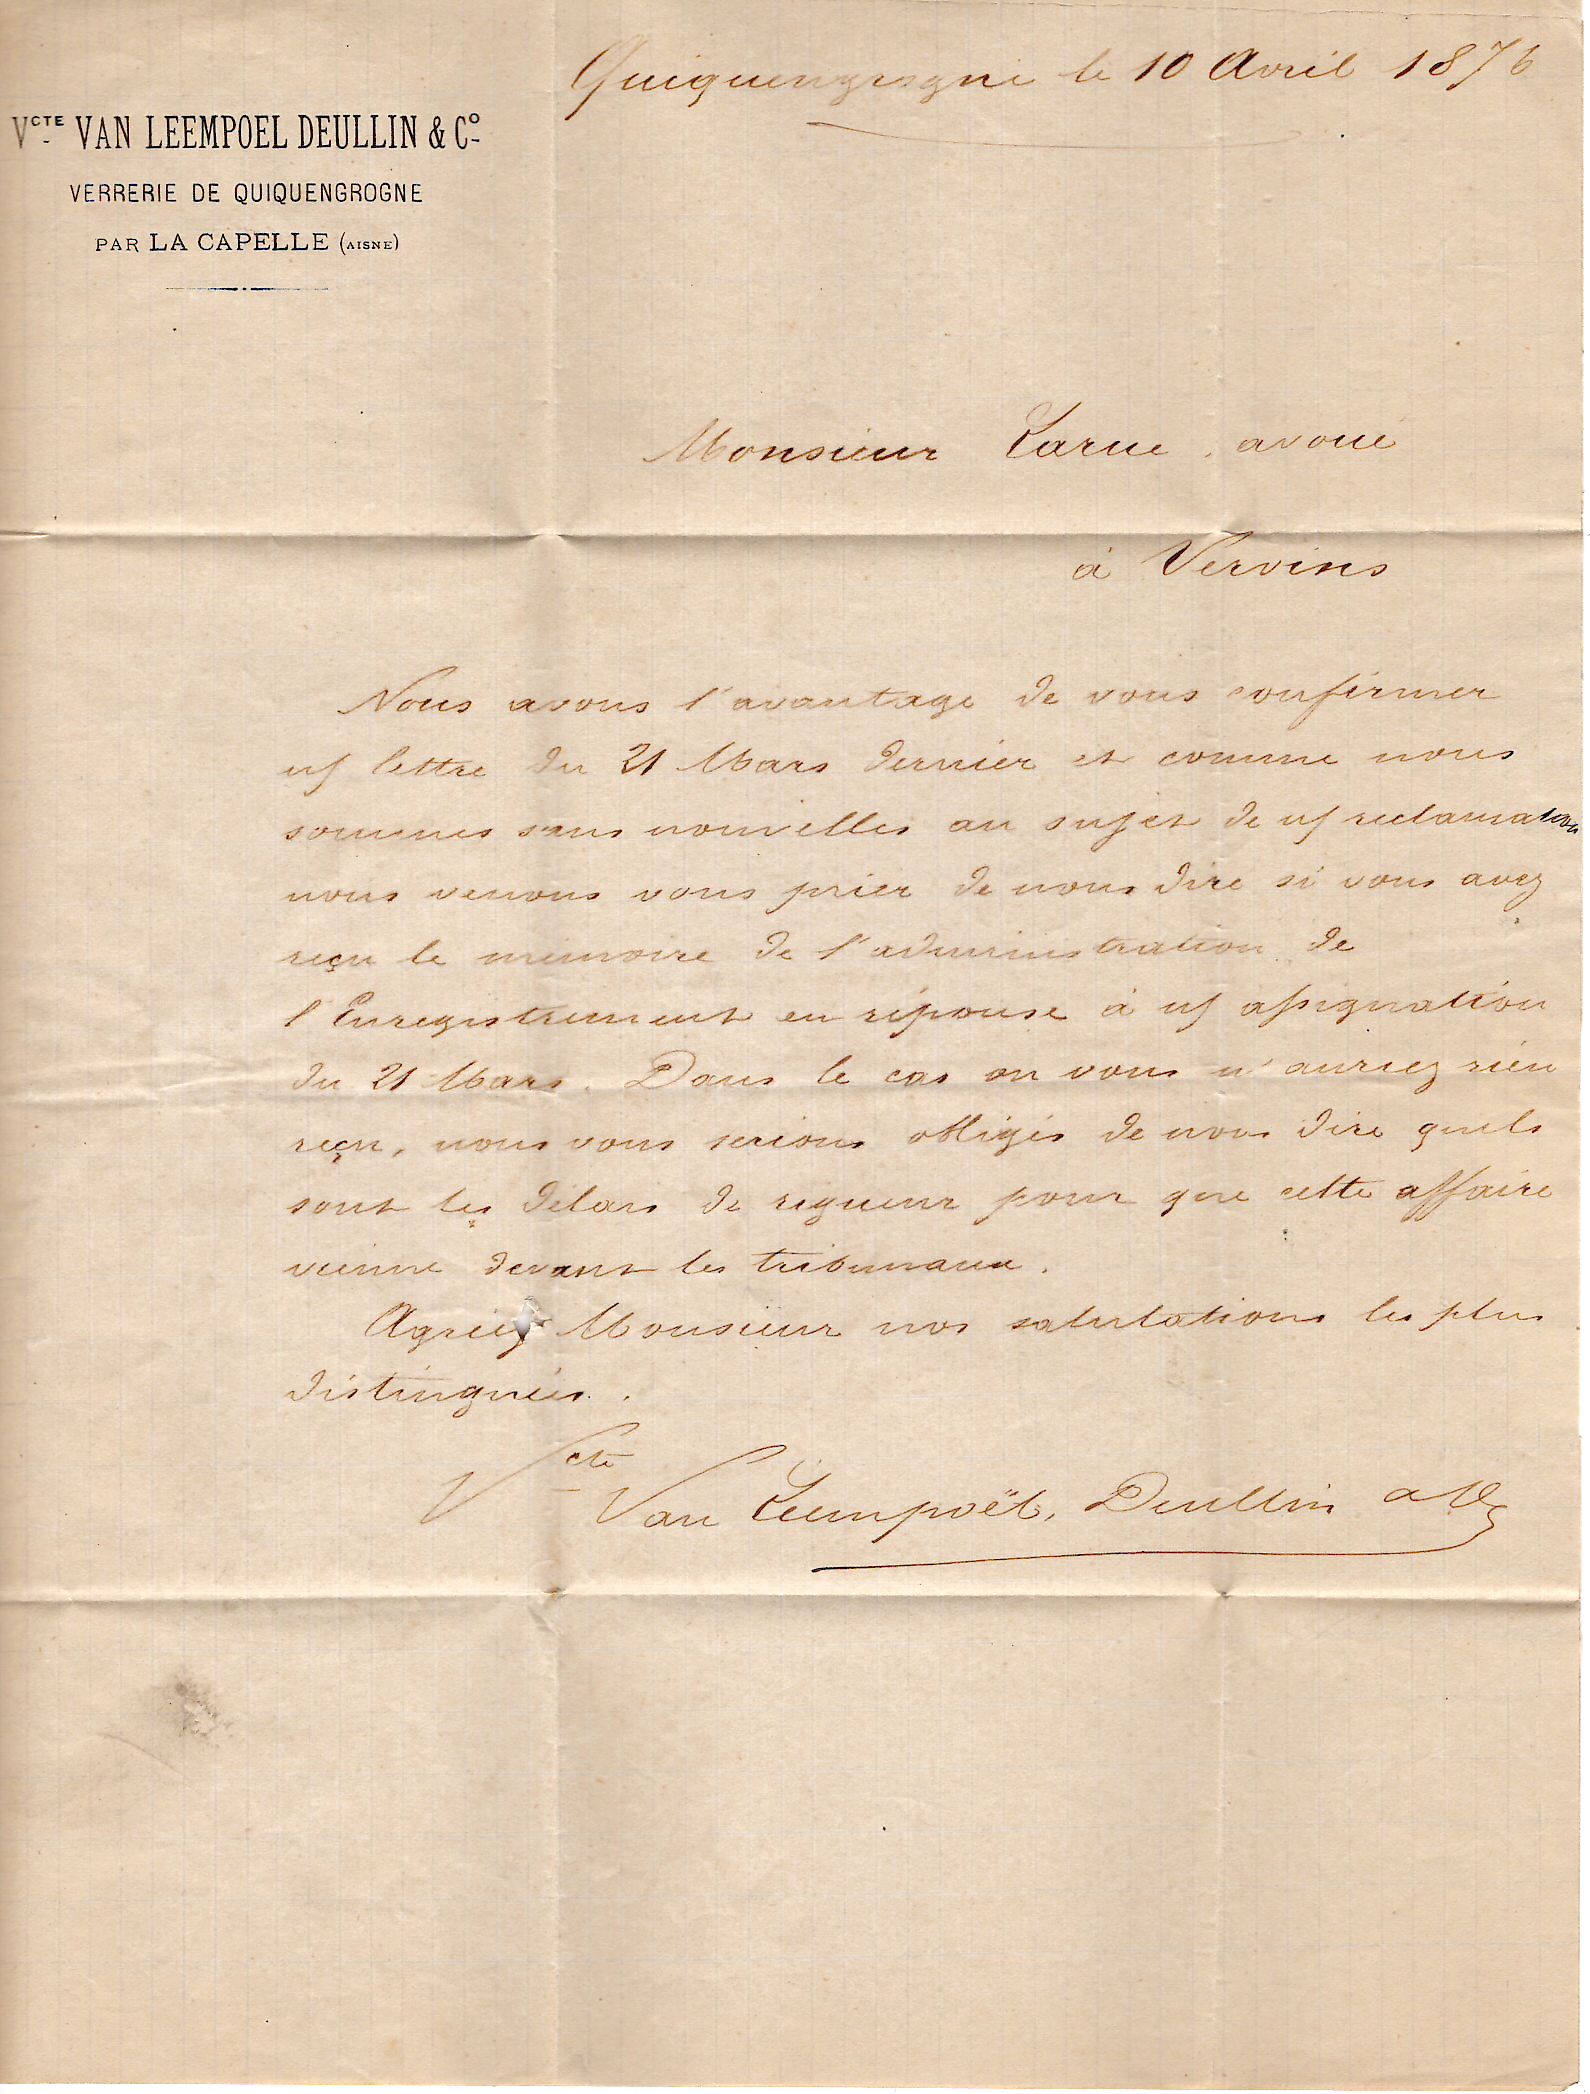 Quiquengrogne le 10 Avril 1876
Vcte VAN LEEMPOEL DEULLIN & Co
VERRERIE DE QUIQUENGROGNE
PAR LA CAPELLE (AISNE)
Monsieur Larue, avoué
à Vervins
Nous avons l'avantage de vous confirmer
n/ lettre du 21 Mars dernier et comme nous
sommes sans nouvelles au sujet de n/ reclamation
nous venons vous prier de nous dire si vous avez
reçu le mémoire de l'administration de
l'Enregistrement en réponse à n/ assignation
du 21 Mars. Dans le cas ou vous n'auriez rien
reçu, nous vous serions obligés de nous dire quels
sont les délais de rigueur pour que cette affaire
vienne devant les tribunaux.
Agréez Monsieur nos salutations les plus
distinguées.
Vcte Van Leempoël, Deullin & Co